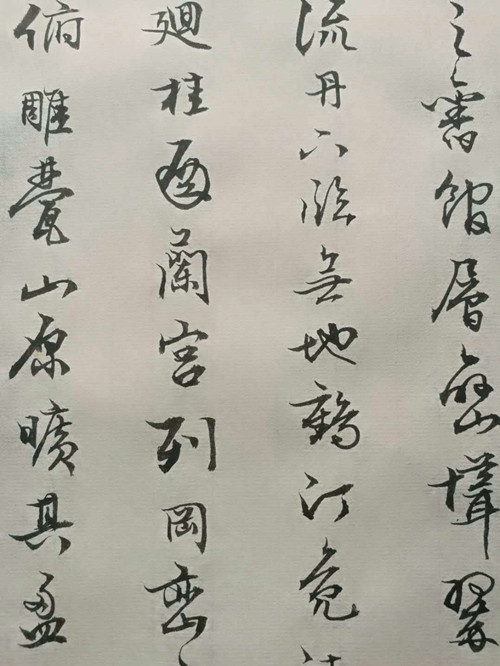 之舊館層巒聳翠
流丹下臨無地鶴汀鳧
廻桂殿蘭宮列岡巒
俯雕甍山原曠其盈